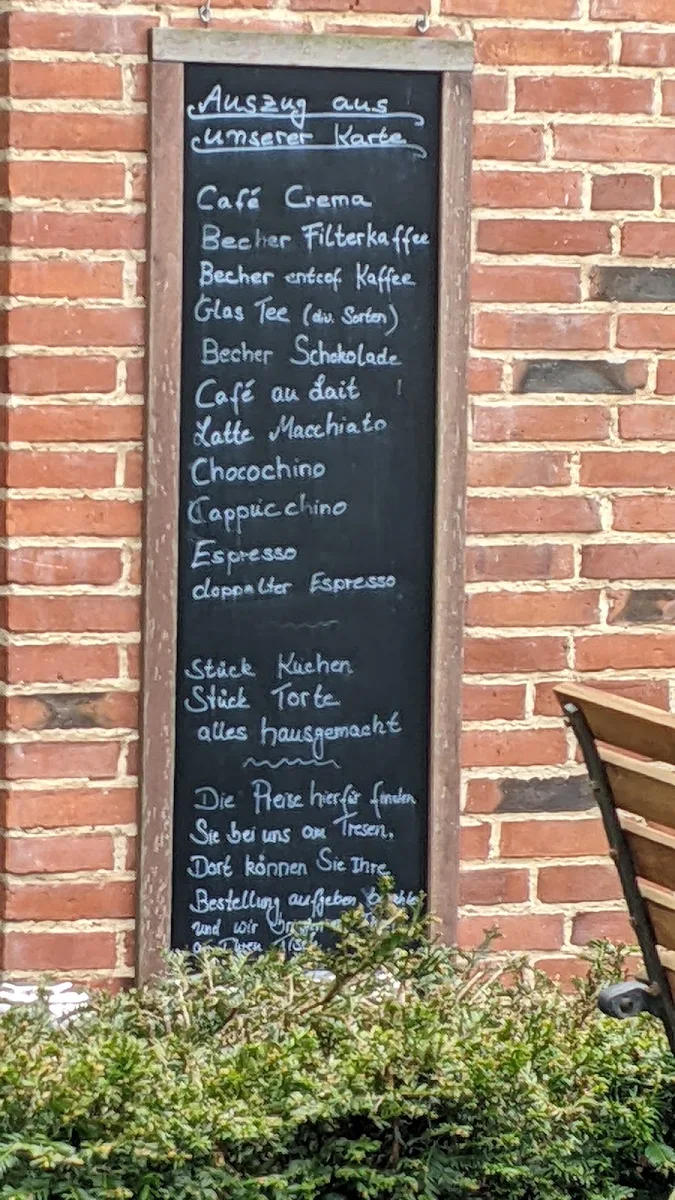 Auszug aus
unserer Karte
Café Crema
Becher Filterkaffee
Becher entcof. Kaffee
Glas Tee (div. Sorten)
Becher Schokolade
Café au Lait
Latte Macchiato
Chocochino
Cappucchino
Espresso
doppalter Espresso
Stück Kuchen
Stück Torte
alles hausgemacht
Die Preise hierfür finden
Sie bei uns am Tresen.
Dort können Sie Ihre
Bestellung aufgeben
und wir